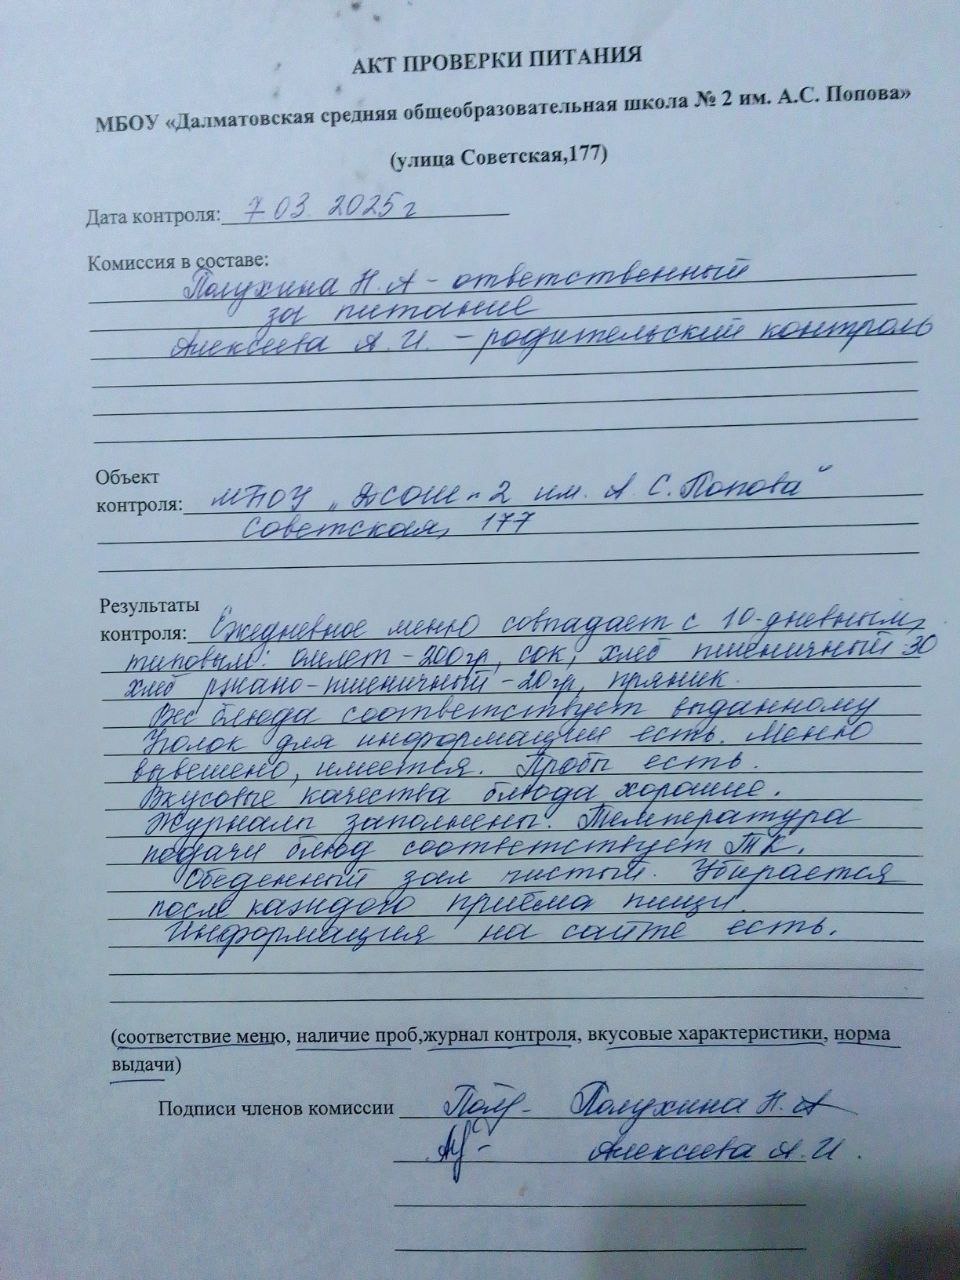 АКТ ПРОВЕРКИ ПИТАНИЯ
МБОУ «Далматовская средняя общеобразовательная школа № 2 им. А.С. Попова»
(улица Советская,177)
Дата контроля: 7 03. 2025 г
Комиссия в составе:
Полухина Н. А - ответственный
за питание
Алексеева А. И. - родительский контроль
Объект
контроля: МБОУ "ДСОШ - 2 им. А. С. Попова"
Советская, 177
Результаты
контроля: Ежедневное меню совпадает с 10-дневным,
типовым: омлет - 200гр, сок, хлеб пшеничный 30
хлеб ржано-пшеничный - 20гр, пряник.
Вес блюда соответствует выданному
Уголок для информации есть. Меню
вывешено, имеется. Пробы есть.
Вкусовые качества блюда хорошие.
Журналы заполнены. Температура
подачи блюд соответствует ТК.
Обеденный зал чистый. Убирается
после каждого приёма пищи.
Информация на сайте есть.
(соответствие меню, наличие проб,журнал контроля, вкусовые характеристики, норма
выдачи)
Подписи членов комиссии Пол - Полухина Н. А
Алексеева А. И.